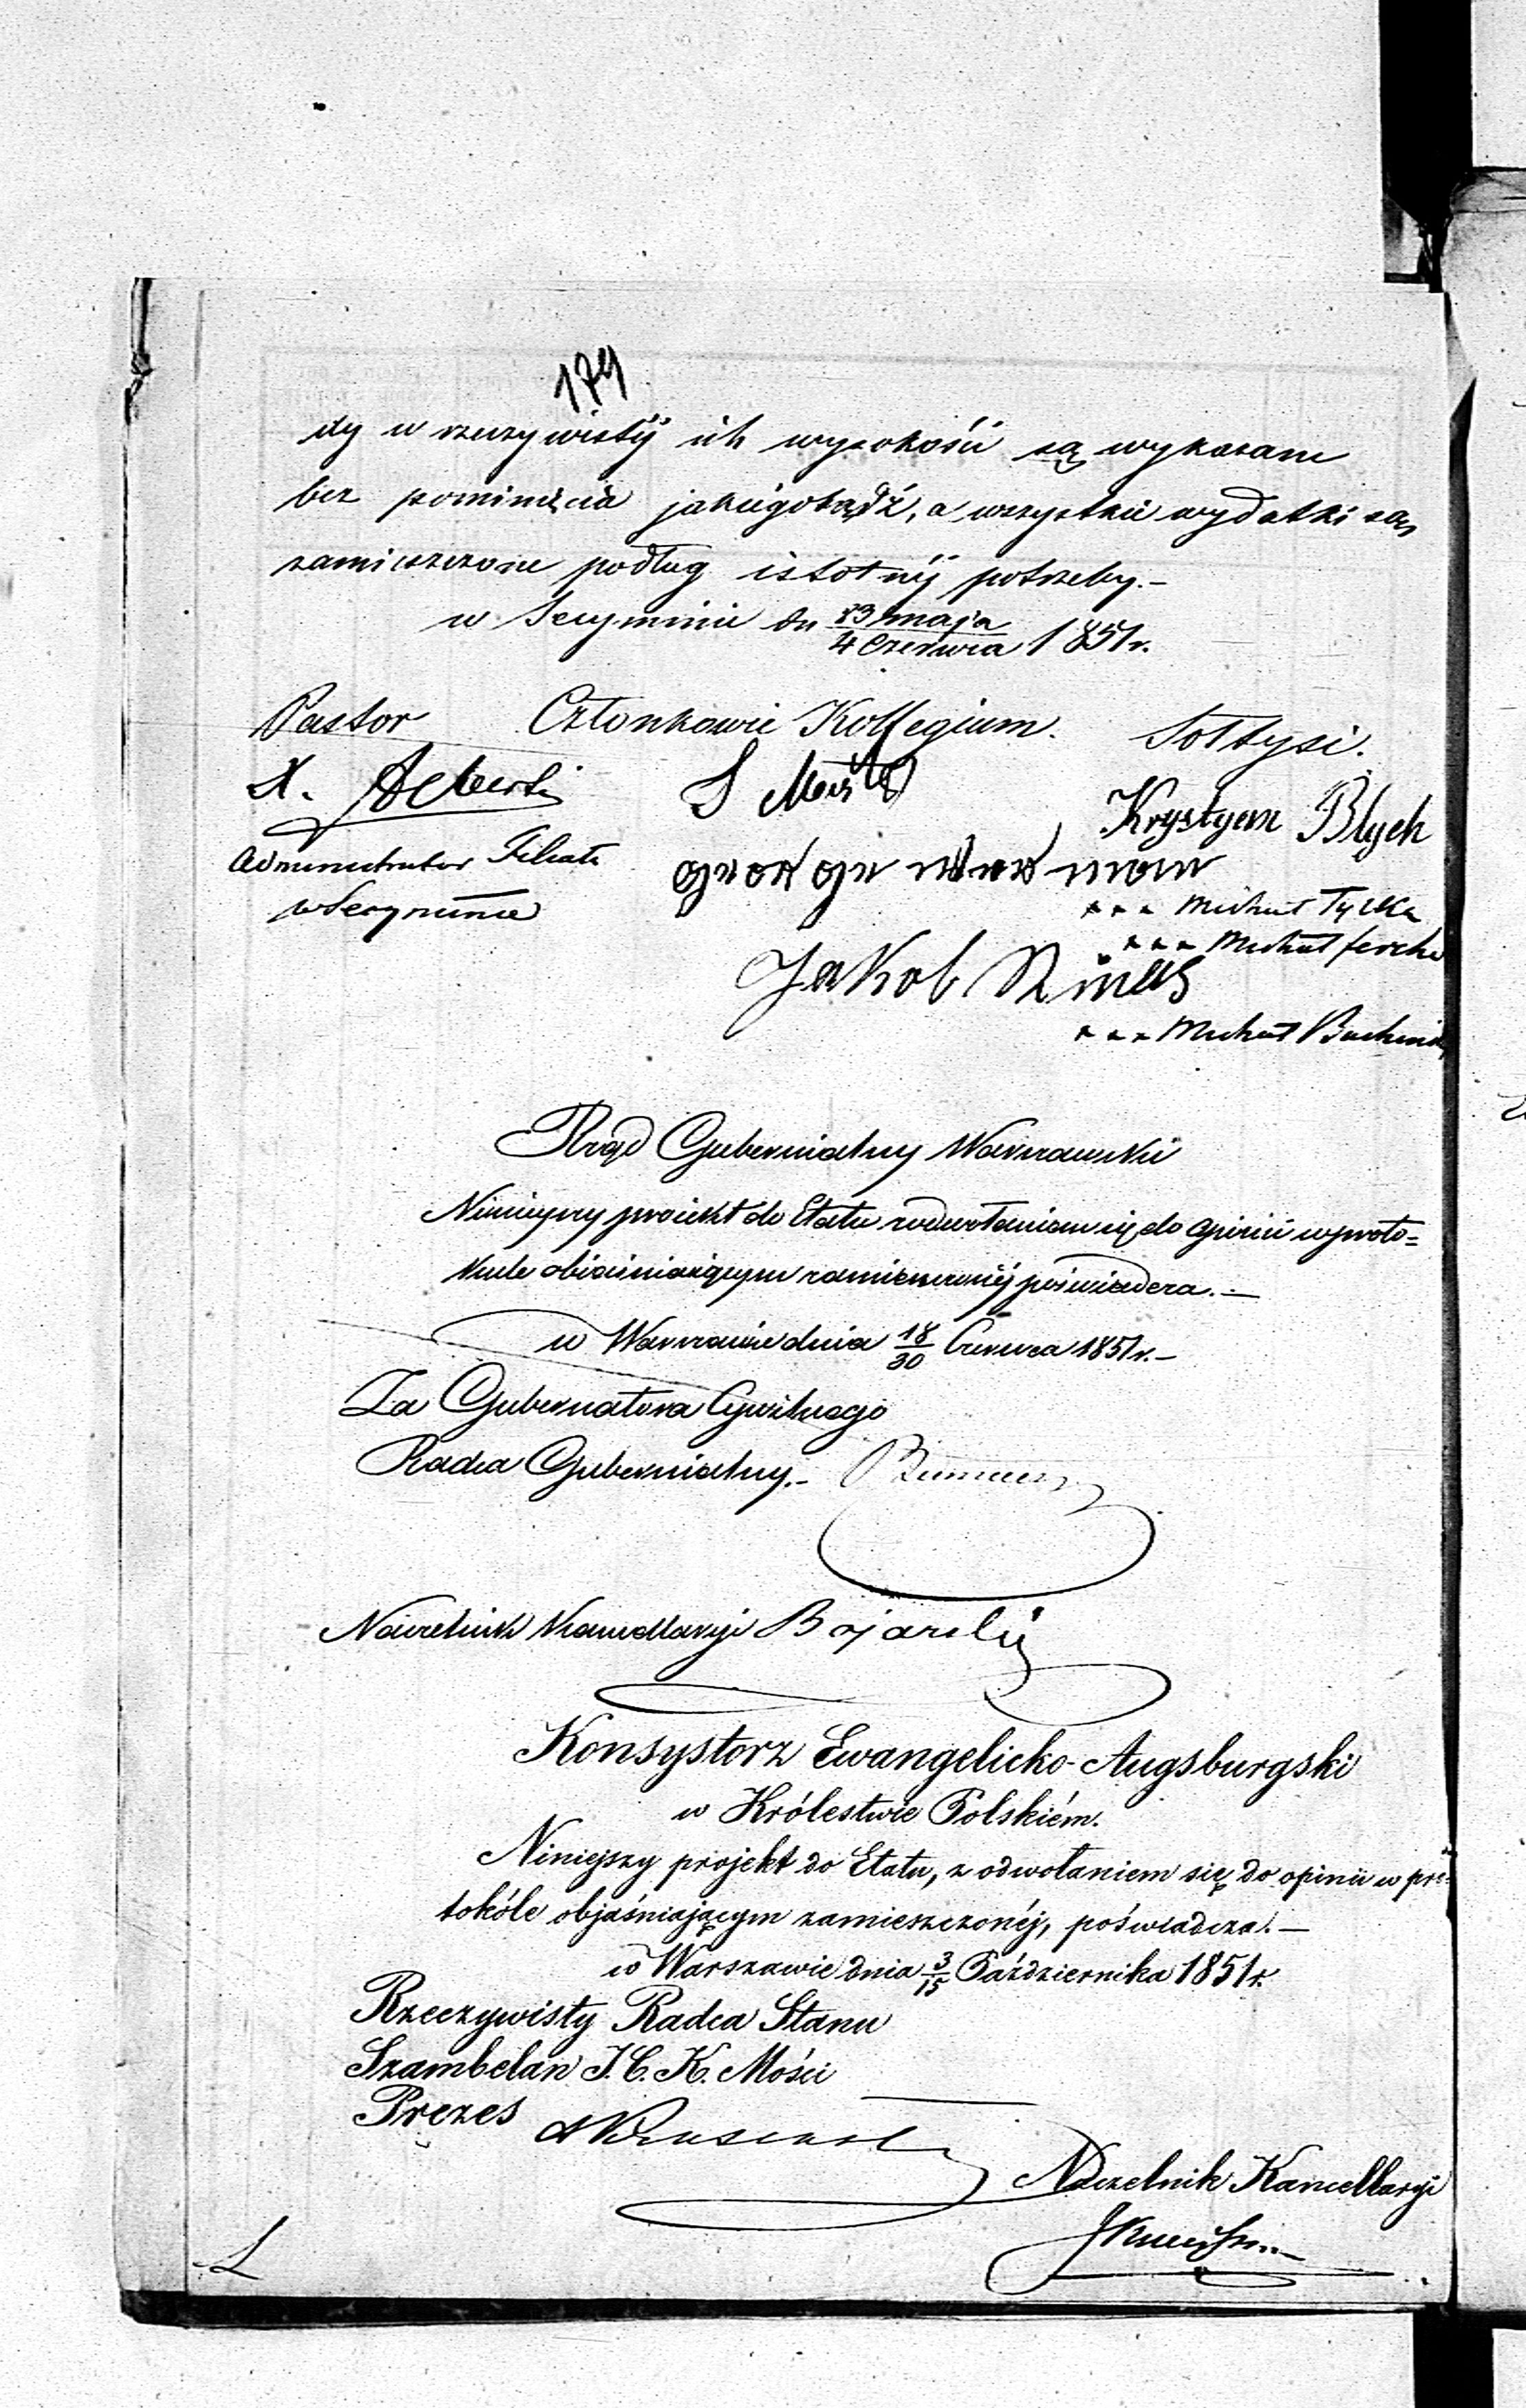 179
dy w rzeczywistéj ich wysokości są wykazane
bez pominięcia jakiegobądź, a wszystkie wydatki są
zamieszczone podług istotnéj potrzeby.–
w Secyminie dn 23 maja / 4 Czerwca 1851 r.
Pastor Członkowie Kollegium. Sołtysi.
X.
Krystyan Blych
Administrator Filiału
w Secyminie
+ + + Michał Tyska
+ + + Michał Ferche
Jakob
+ + + Michał
Rząd Gubernialny Warszawski
Niniejszy proiekt do Etatu z odwołaniem się do opinii w proto=
kule obiaśniaiącym zamieszczonéj poświadcza.–
w Warszawie dnia 18/30 Czerwca 1851 r.–
Za Gubernatora Cywilnego
Radca Gubernialny.–
Naczelnik Kancellaryi
Konsystorz Ewangelicko-Augsburgski
w Królestwie Polskiém.
Niniejszy projekt do Etatu, z odwołaniem się do opinii w pro=
tokóle objaśniającym zamieszczonéj, poświadcza.–
w Warszawie dnia 3/15 Października 1851 r.
Rzeczywisty Radca Stanu
Szambelan J. C. K. Mości
Prezes
Naczelnik Kancellaryi